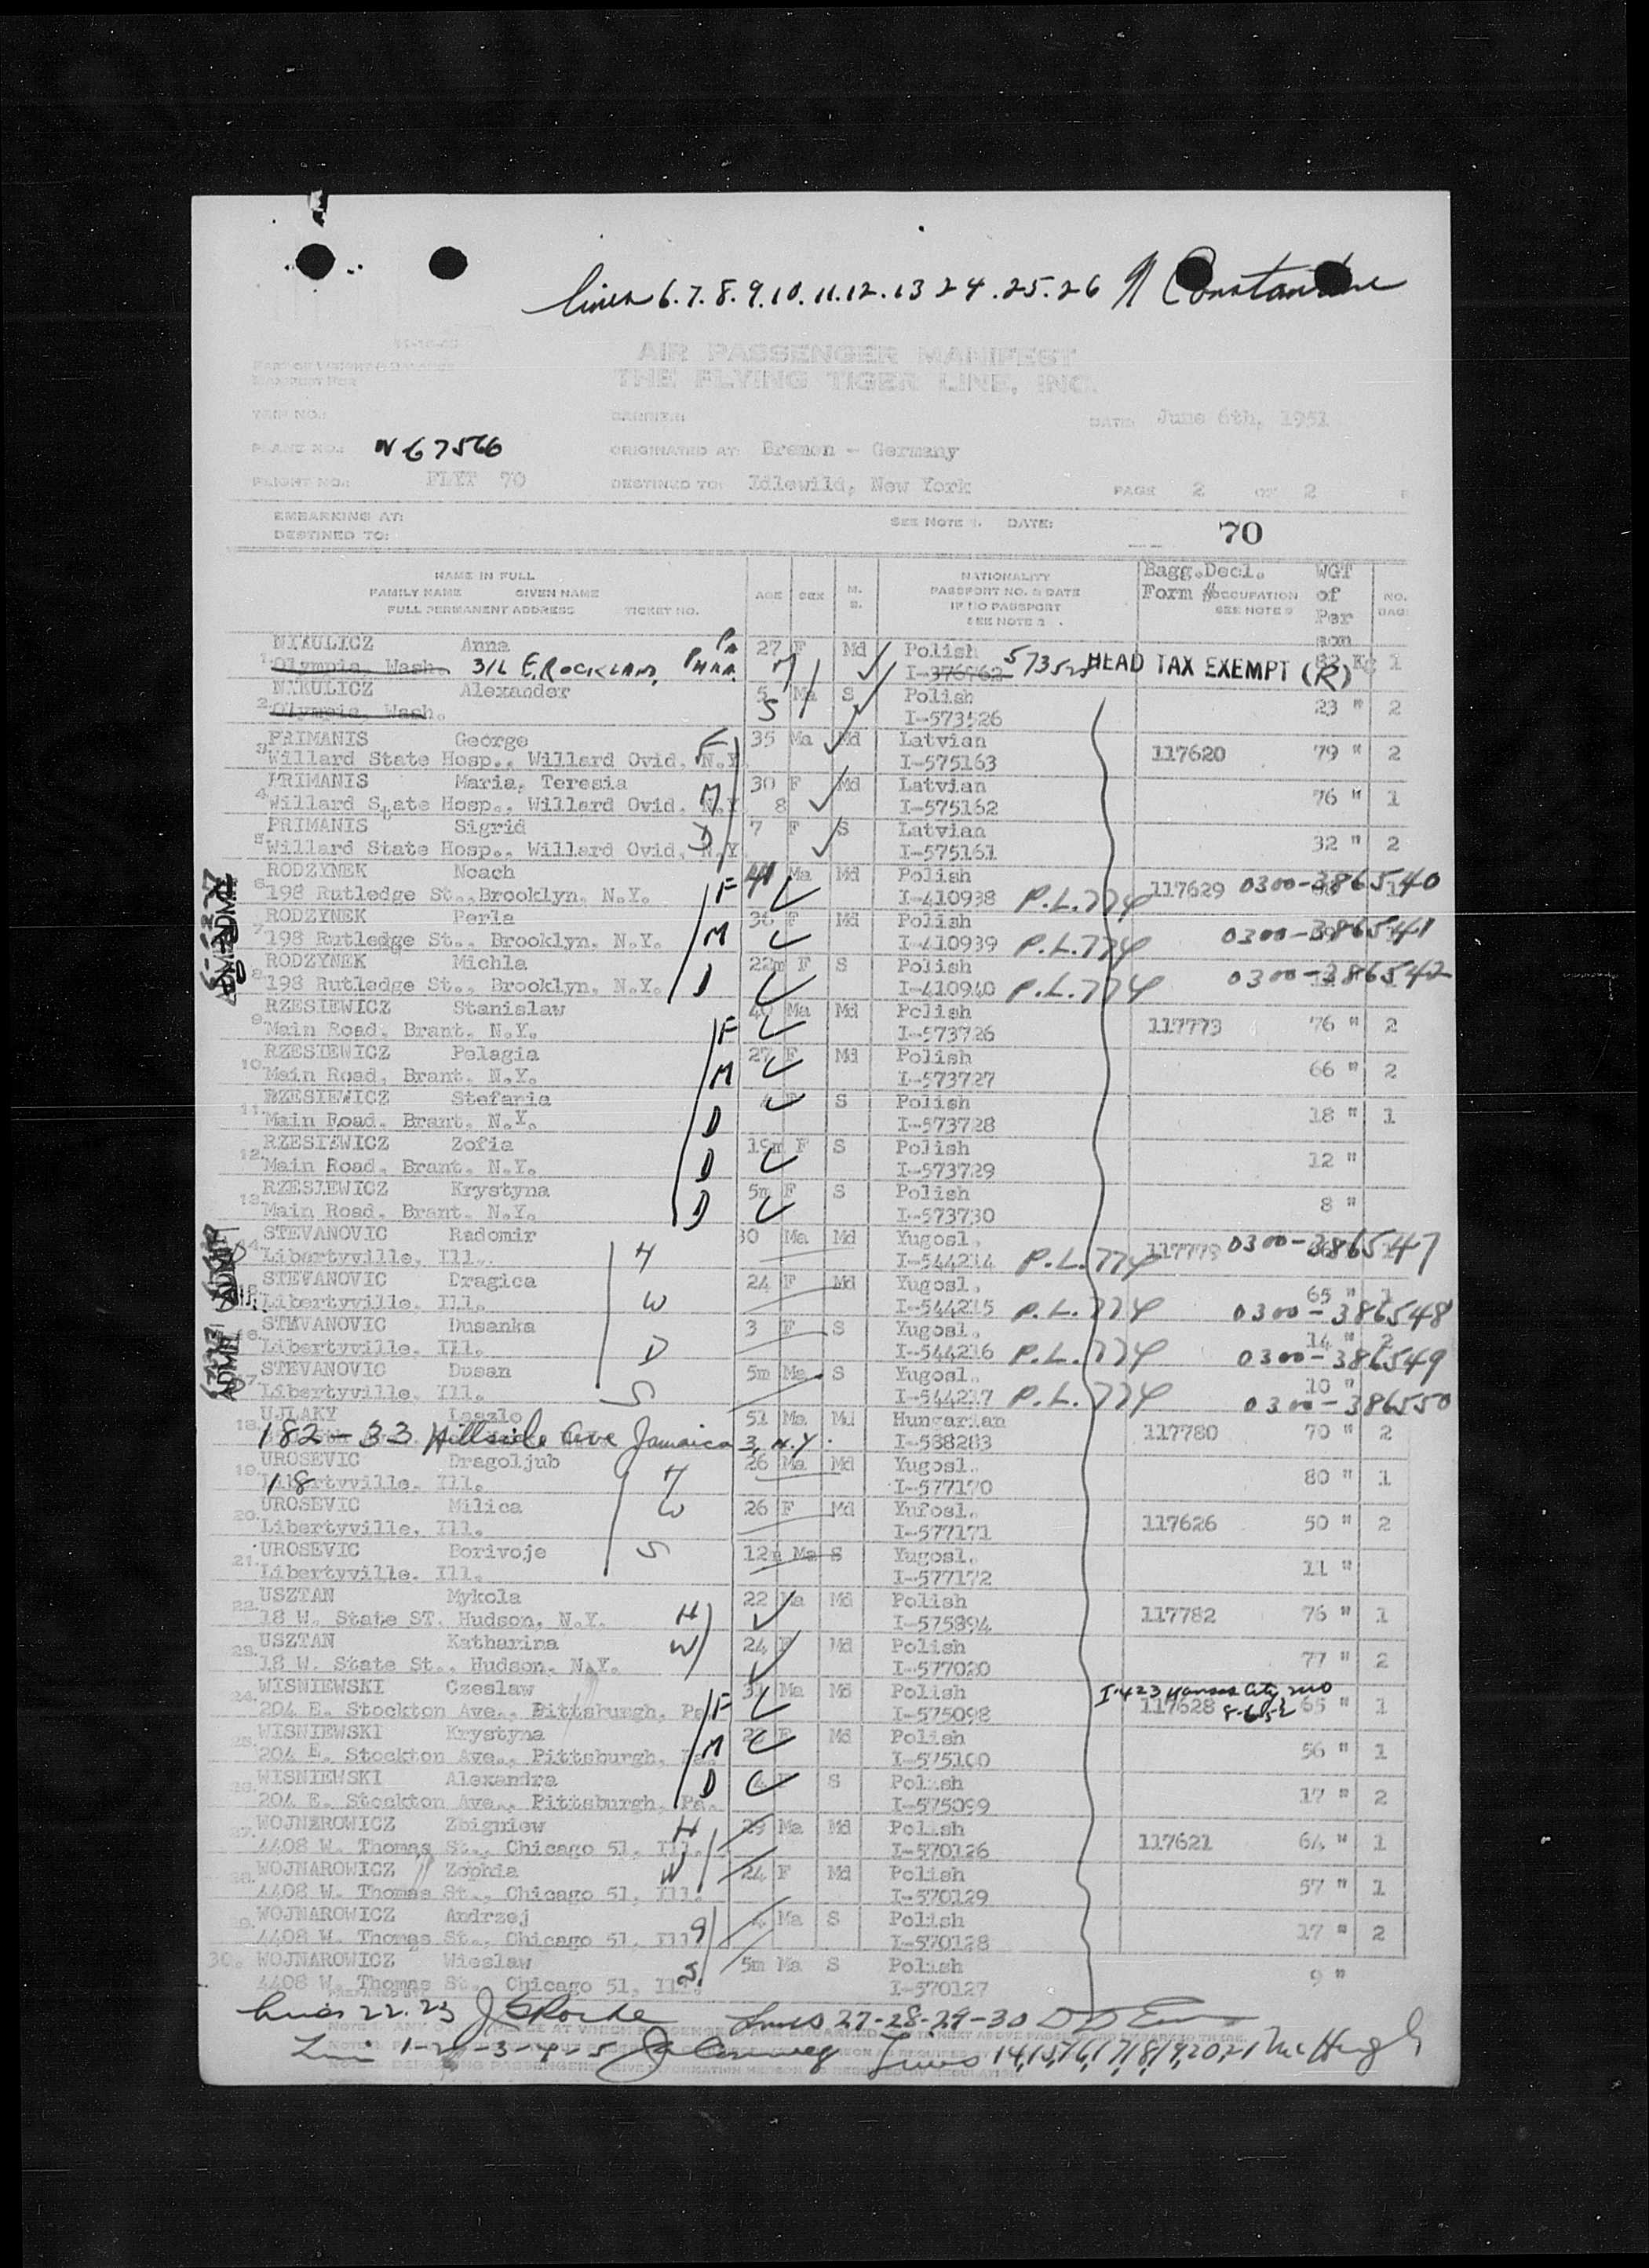 lines 6.7.8.9.10.11.12.13 24.25.26 N Constantine
AIR PASSENGER MANIFEST
THE FLYING TIGER LINE, INC.
TRIP NO.: CARRIER: DATE: June 6th, 1951
PLANE NO.: N 67566 ORIGINATED AT: Bremen - Germany
FLIGHT NO.: FLYT 70 DESTINED TO: Idlewild, New York PAGE 2 OF 2
EMBARKING AT: SEE NOTE 1. DATE: 70
DESTINED TO:
NAME IN FULL NATIONALITY Bagg.Decl. WGT
FAMILY NAME GIVEN NAME AGE SEX M. S. PASSPORT NO. & DATE Form # OCCUPATION of NO.
FULL PERMANENT ADDRESS TICKET NO. IF NO PASSPORT SEE NOTE Per BAGS
SEE NOTE 2 son
NIKULICZ Anna 27 F Md Polish
1. Olympia, Wash. 316 E. ROCKLAND, PHILA. PA M I-376762 573525 HEAD TAX EXEMPT (R) 1
NIKULICZ Alexander 5 Ma S Polish
2. Olympia, Wash. S I-573526 23 " 2
PRIMANIS George F 35 Ma Md Latvian
3. Willard State Hosp., Willard Ovid, N.Y. I-575163 117620 79 " 2
PRIMANIS Maria, Teresia M 30 F Md Latvian
4. Willard State Hosp., Willard Ovid, N.Y. 8 I-575162 76 " 1
PRIMANIS Sigrid D 7 F S Latvian
5. Willard State Hosp., Willard Ovid, N.Y. I-575161 32 " 2
RODZYNEK Noach F 41 Ma Md Polish
6. 198 Rutledge St., Brooklyn, N.Y. I-410938 P.L.774 117629 0300-386540
RODZYNEK Perla 36 F Md Polish
7. 198 Rutledge St., Brooklyn, N.Y. M I-410939 P.L.774 0300-386541
RODZYNEK Michla 22m F S Polish
8. 198 Rutledge St., Brooklyn, N.Y. D I-410940 P.L.774 0300-386542
RZESIEWICZ Stanislaw 40 Ma Md Polish
9. Main Road, Brant, N.Y. F I-573726 117773 76 " 2
RZESIEWICZ Pelagia 27 F Md Polish
10. Main Road, Brant, N.Y. M I-573727 66 " 2
RZESIEWICZ Stefania 4 F S Polish
11. Main Road, Brant, N.Y. D I-573728 18 " 1
RZESIEWICZ Zofia 19m F S Polish
12. Main Road, Brant, N.Y. D I-573729 12 "
RZESIEWICZ Krystyna 5m F S Polish
13. Main Road, Brant, N.Y. D I-573730 8 "
STEVANOVIC Radomir 30 Ma Md Yugosl.
14. Libertyville, Ill. H I-544214 P.L.774 117778 0300-386547
STEVANOVIC Dragica 24 F Md Yugosl.
15. Libertyville, Ill. W I-544215 P.L.774 65 " 0300-386548
STEVANOVIC Dusanka 3 F S Yugosl.
16. Libertyville, Ill. D I-544216 P.L.774 14 " 2 0300-386549
STEVANOVIC Dusan 5m Ma S Yugosl.
17. Libertyville, Ill. S I-544217 P.L.774 10 " 0300-386550
UJLAKY Laszlo 51 Ma Md Hungarian
18. 182-33 Hillside Ave Jamaica 3, N.Y. I-588283 117780 70 " 2
UROSEVIC Dragoljub 26 Ma Md Yugosl.
19. Libertyville, Ill. 18 H I-577170 80 " 1
UROSEVIC Milica W 26 F Md Yufosl.
20. Libertyville, Ill. I-577171 117626 50 " 2
UROSEVIC Borivoje S 12m Ma S Yugosl.
21. Libertyville, Ill. I-577172 11 "
USZTAN Mykola 22 Ma Md Polish
22. 18 W. State ST. Hudson, N.Y. H I-575894 117782 76 " 1
USZTAN Katharina W 24 F Md Polish
23. 18 W. State St., Hudson, N.Y. I-577020 77 " 2
WISNIEWSKI Czeslaw 31 Ma Md Polish I-423 Kansas City Mo
24. 204 E. Stockton Ave., Pittsburgh, Pa. F I-575098 117628 8-6-52 65 " 1
WISNIEWSKI Krystyna F Md Polish
25. 204 E. Stockton Ave., Pittsburgh, Pa. M I-575100 56 " 1
WISNIEWSKI Alexandra 4 F S Polish
26. 204 E. Stockton Ave., Pittsburgh, Pa. D I-575099 17 " 2
WOJNEROWICZ Zbigniew H 29 Ma Md Polish
27. 4408 W. Thomas St., Chicago 51, Ill. I-570126 117621 64 " 1
WOJNAROWICZ Zophia W 24 F Md Polish
28. 4408 W. Thomas St., Chicago 51, Ill. I-570129 57 " 1
WOJNAROWICZ Andrzej 4 Ma S Polish
29. 4408 W. Thomas St., Chicago 51, Ill. I-570128 17 " 2
30. WOJNAROWICZ Wieslaw 5m Ma S Polish
4408 W. Thomas St., Chicago 51, Ill. S I-570127 9 "
Lines 22.23 Lines 27-28-29-30
Line 1-2-3-4-5 Lines 14,15,16,17,18,19,20,21 McHugh